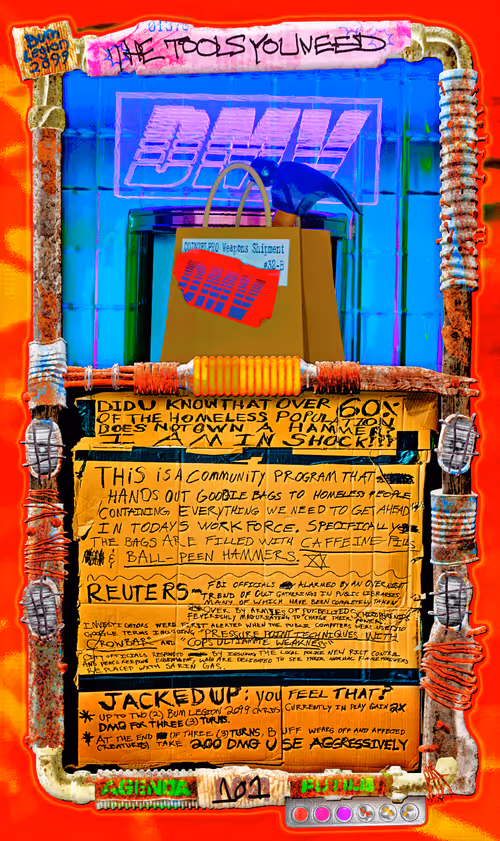 THE TOOLS YOU NEED
Bum
Legion
2099
DMV
COINTELPRO Weapons Shipment
#32-B
DID U KNOW THAT OVER 60%
OF THE HOMELESS POPULATION
DOES NOT OWN A HAMMER
I AM IN SHOCK!!!
THIS IS A COMMUNITY PROGRAM THAT
HANDS OUT GOODIE BAGS TO HOMELESS PEOPLE
CONTAINING EVERYTHING WE NEED TO GET AHEAD
IN TODAYS WORK FORCE. SPECIFICALLY
THE BAGS ARE FILLED WITH CAFFEINE PILLS
& BALL-PEEN HAMMERS.
REUTERS~ FBI OFFICIALS ALARMED BY AN OVERNIGHT
TREND OF CULT GATHERINGS IN PUBLIC LIBRARIES
MANY OF WHICH HAVE BEEN COMPLETELY TAKEN
OVER BY ARMIES OF
FEVERISHLY TO CHARGE THEIR
INVESTIGATORS WERE FIRST ALERTED WHEN THE PUBLIC COMPUTERS
GOOGLE TERMS INCLUDING "PRESSURE POINT TECHNIQUES WITH
CROWBAR" "COPS ULTIMATE WEAKNESS"
OFFICIALS BY ISSUING THE LOCAL POLICE WITH RIOT CONTROL
AND PEACEKEEPING EQUIPMENT, WHO ARE DELIGHTED TO SEE THEIR NORMAL FLAMETHROWERS
REPLACED WITH SARIN GAS.
JACKED UP: you FEEL THAT?
* UP TO TWO (2) BUM LEGION 2099 CARDS CURRENTLY IN PLAY GAIN 2X
DMG FOR THREE (3) TURNS.
* AT THE END OF THREE (3) TURNS, BUFF WEARS OFF AND AFFECTED
CREATURE(S) TAKE 200 DMG USE AGGRESSIVELY
AGENDA 1of1